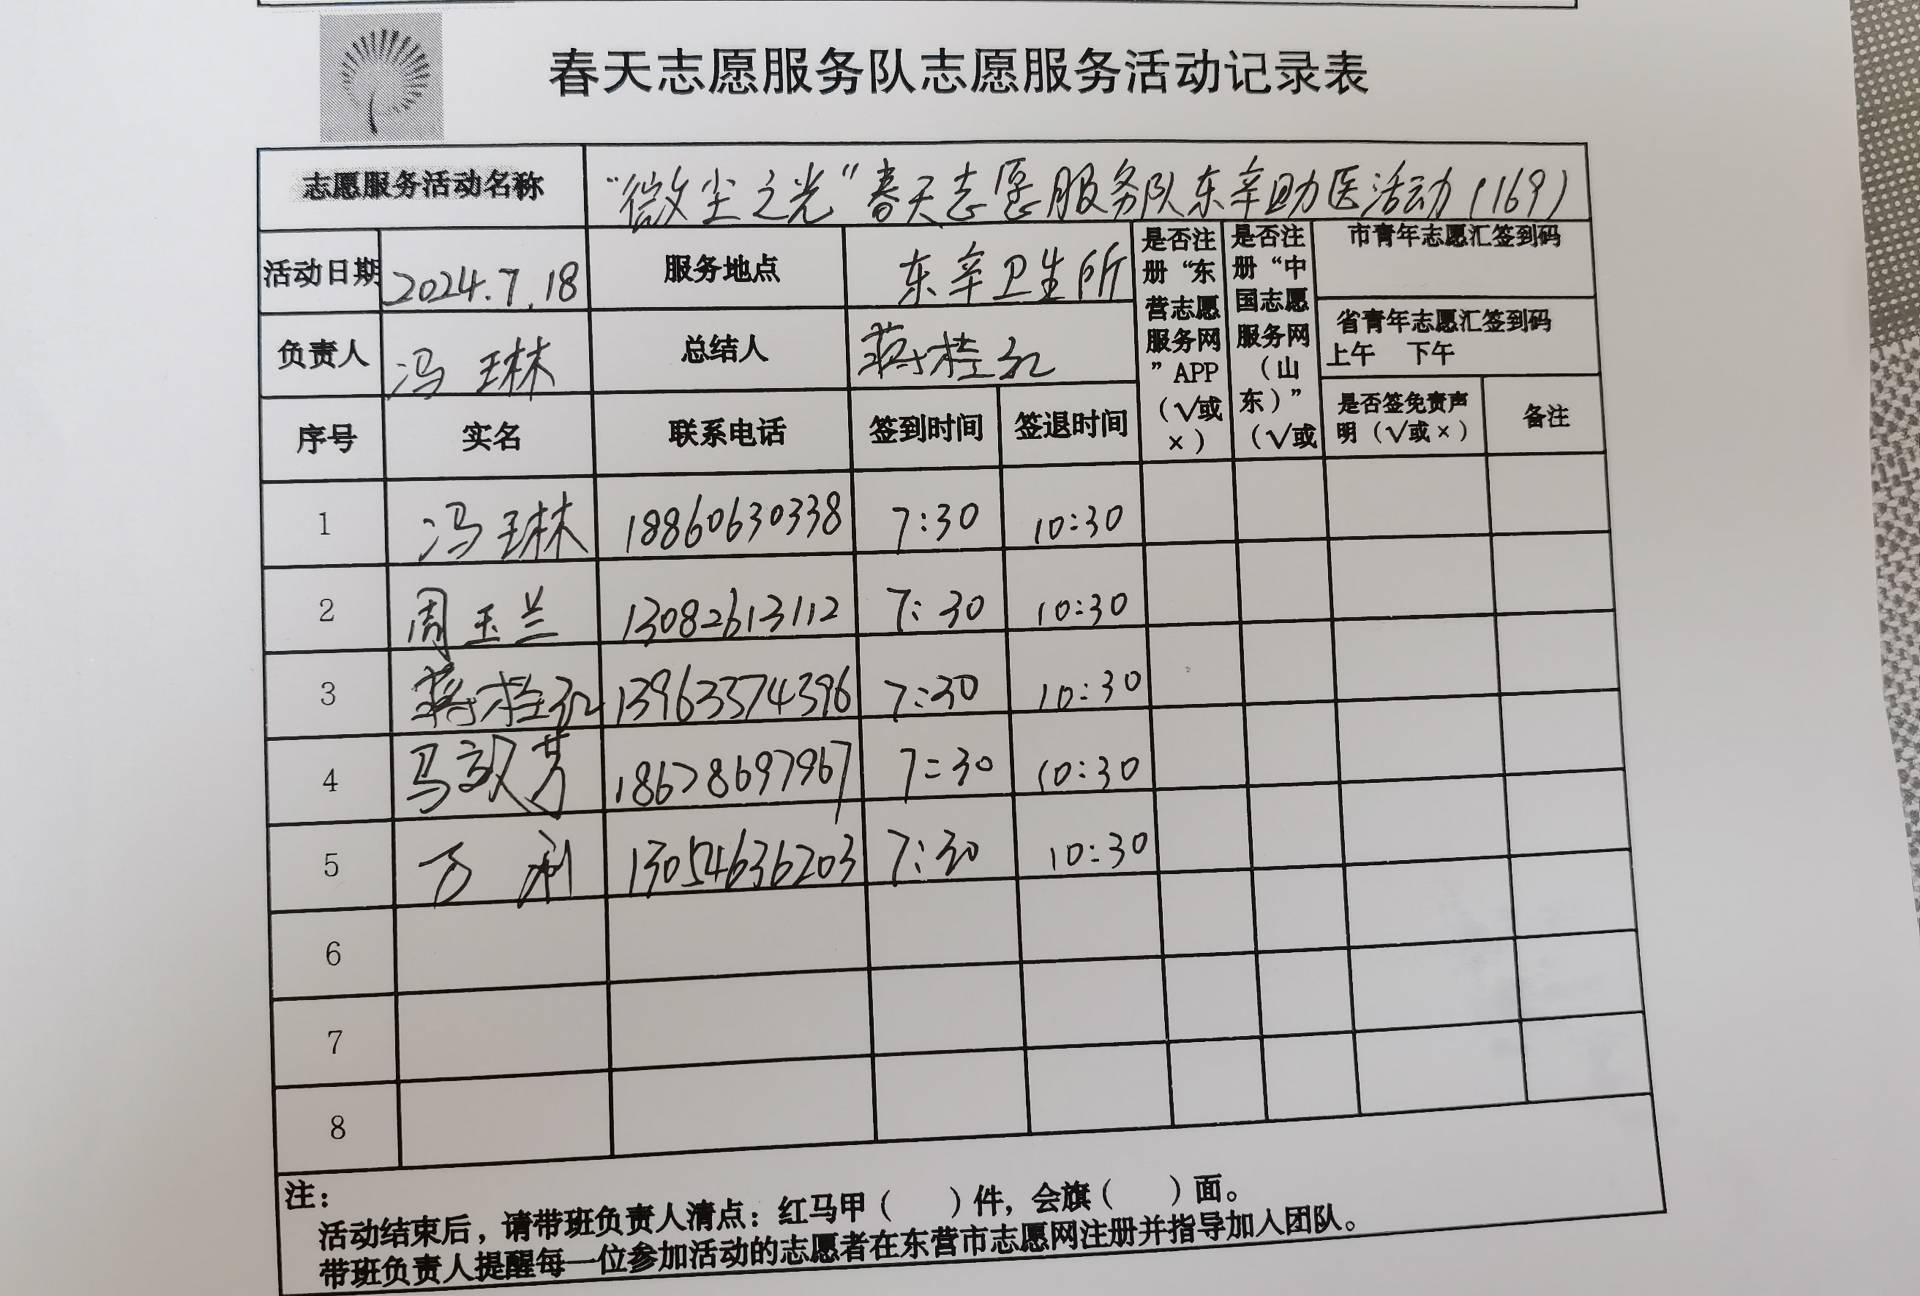 春天志愿服务队志愿服务活动记录表
志愿服务活动名称 “微尘之光”春天志愿服务队东辛助医活动(169)
活动日期 2024.7.18 服务地点 东辛卫生所 是否注册“东营志愿服务网”APP（√或×） 是否注册“中国志愿服务网（山东）”（√或 市青年志愿汇签到码
负责人 冯琳 总结人 蒋桂红 省青年志愿汇签到码
上午 下午
序号 实名 联系电话 签到时间 签退时间 是否签免责声明（√或×） 备注
1 冯琳 18860630338 7:30 10:30
2 周玉兰 13082613112 7:30 10:30
3 蒋桂红 13963374396 7:30 10:30
4 马芳 18678697967 7:30 10:30
5 万利 13054636203 7:30 10:30
6
7
8
注：
活动结束后，请带班负责人清点：红马甲（ ）件，会旗（ ）面。
带班负责人提醒每一位参加活动的志愿者在东营市志愿网注册并指导加入团队。